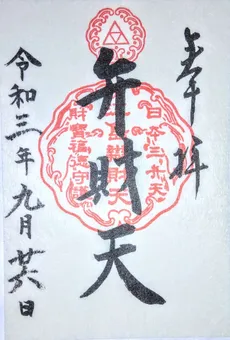 奉拝
日本三弁天
弁財天
財寶福徳守護
令和三年九月廿六日